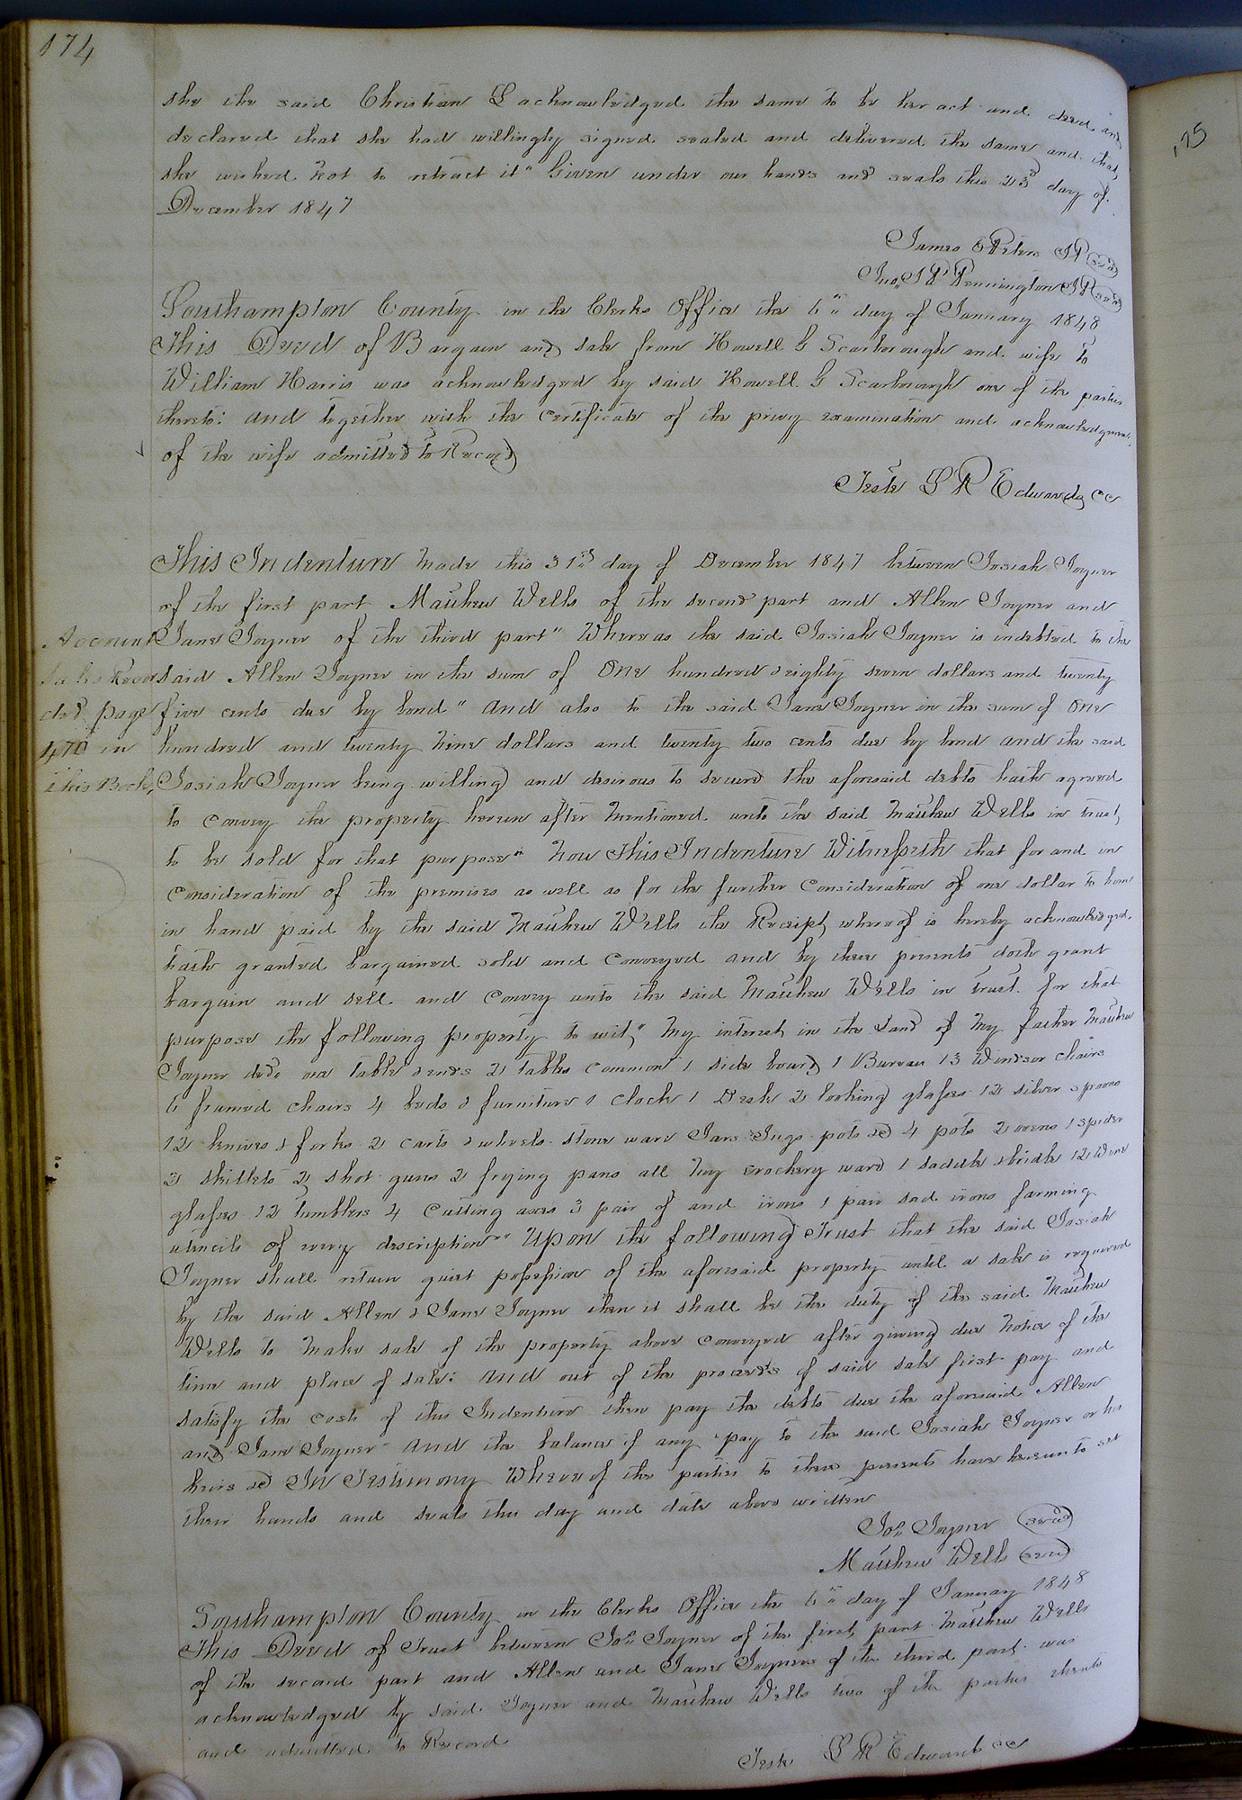 174
175
she the said Christian L acknowledged the same to be her act and deed and
declared that she had willingly signed sealed and delivered the same and that
she wished not to retract it" Given under our hands and seals this 23d day of
December 1847
James JP (seal)
Jno. Pennington JP (seal)
Southampton County in the Clerks Office the 6th day of January 1848
This Deed of Bargain and sale from Howell G Scarborough and wife to
William Harris was acknowledged by said Howell G Scarborough one of the parties
thereto: and together with the certificate of the privy examination and acknowledgment
of the wife admitted to Record
Teste L R Edwards CC
This Indenture made this 31st day of December 1847 between Josiah Joyner
of the first part Matthew Wells of the second part and Allen Joyner and
Jane Joyner of the third part" Whereas the said Josiah Joyner is indebted to the
said Allen Joyner in the sum of One hundred & eighty seven dollars and twenty
five cents due by bond" and also to the said Jane Joyner in the sum of One
hundred and twenty nine dollars and twenty two cents due by bond and the said
Josiah Joyner being willing and desirous to secure the aforesaid debts hath agreed
to convey the property herein after mentioned unto the said Matthew Wells in trust,
to be sold for that purpose" Now This Indenture Witnesseth that for and in
consideration of the premises as well as for the further consideration of one dollar to him
in hand paid by the said Matthew Wells the Receipt whereof is hereby acknowledged,
hath granted bargained sold and conveyed and by these presents doth grant
bargain and sell and convey unto the said Matthew Wells in trust for that
purpose the following property to wit, my interest in the Land of my father Matthew
Joyner decd one table & ends 2 tables common 1 side board 1 Bureau 13 Windsor chairs
6 framed chairs 4 beds & furniture 1 clock 1 Desk 2 looking glasses 12 silver spoons
12 knives & forks 2 carts & wheels stone ware Jars Jugs pots &c 4 pots 2 ovens 1 spider
2 skillets 2 shot guns 2 frying pans all my crockery ware 1 saddle & bridle 12 Wine
glasses 12 tumblers 4 cutting axes 3 pair of and irons 1 pair sad irons farming
utencils of every description" Upon the following Trust that the said Josiah
Joyner shall retain quiet possession of the aforesaid property until a sale is required
by the said Allen & Jane Joyner then it shall be the duty of the said Matthew
Wells to make sale of the property above conveyed after giving due notice of the
time and place of sale: and out of the proceeds of said sale first pay and
satisfy the cost of this Indenture then pay the debts due the aforesaid Allen
and Jane Joyner and the balance if any pay to the said Josiah Joyner or his
heirs &c In Testimony Whereof the parties to these presents have hereunto set
their hands and seals the day and date above written
Jos. Joyner (seal)
Matthew Wells (seal)
Southampton County in the Clerks Office the 6th day of January 1848
This Deed of Trust between Jos. Joyner of the first part Matthew Wells
of the second part and Allen and Jane Joyner of the third part was
acknowledged by said Joyner and Matthew Wells two of the parties thereto
and admitted to Record
Teste L R Edwards CC
Account
Sales Recor
ded page
470 in
this Book,